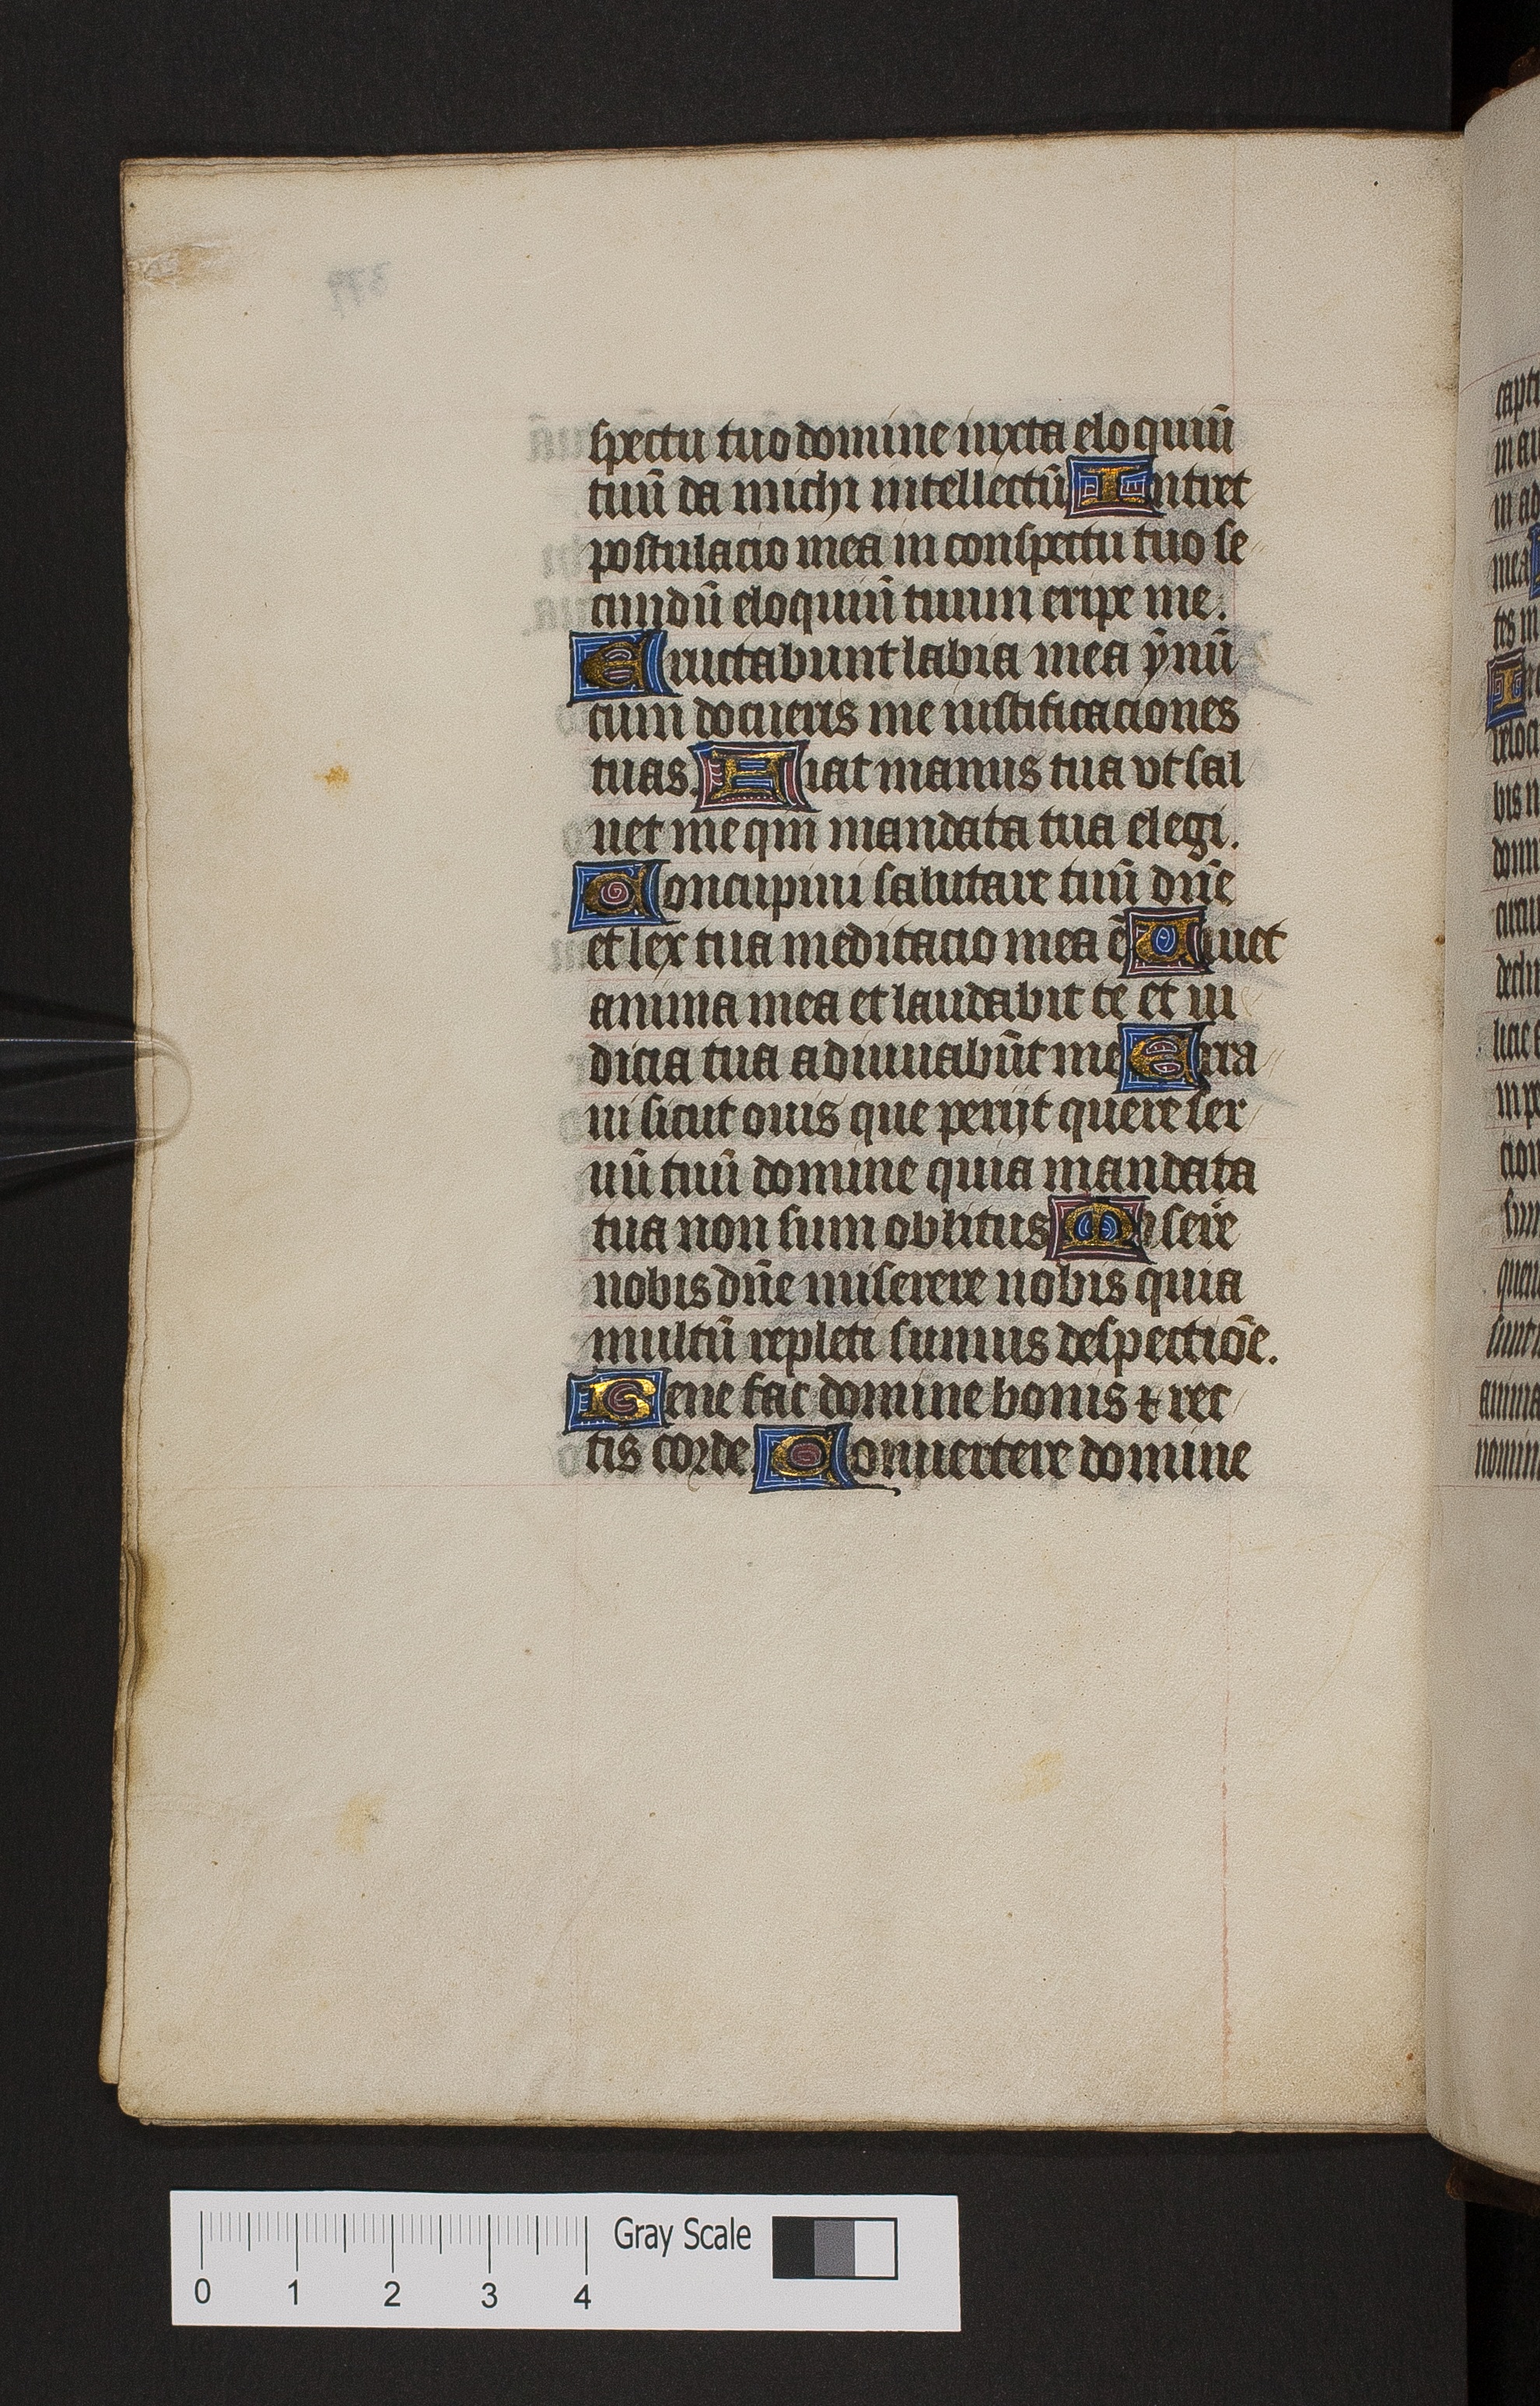 spectu tuo domine iuxta eloquiū
tuū da michi intellectū Intret
postulacio mea in conspectu tuo se
cundū eloquiū tuum eripe me.
Eructabunt labia mea ẏnū
cum docueris me iustificaciones
tuas. Fiat manus tua vt sal
uet me qm̄ mandata tua elegi.
Concupiui salutare tuū dn̄e
et lex tua meditacio mea ē Viuet
anima mea et laudabit te et iu
dicia tua adiuuabūt me Erra
ui sicut ouis que perijt quere ser
uū tuū domine quia mandata
tua non sum oblitus Miserē
nobis dn̄e miserere nobis quia
multū repleti sumus despectiōe.
Bene fac domine bonis ⁊ rec
tis corde. Conuertere domine
Gray Scale
0 1 2 3 4